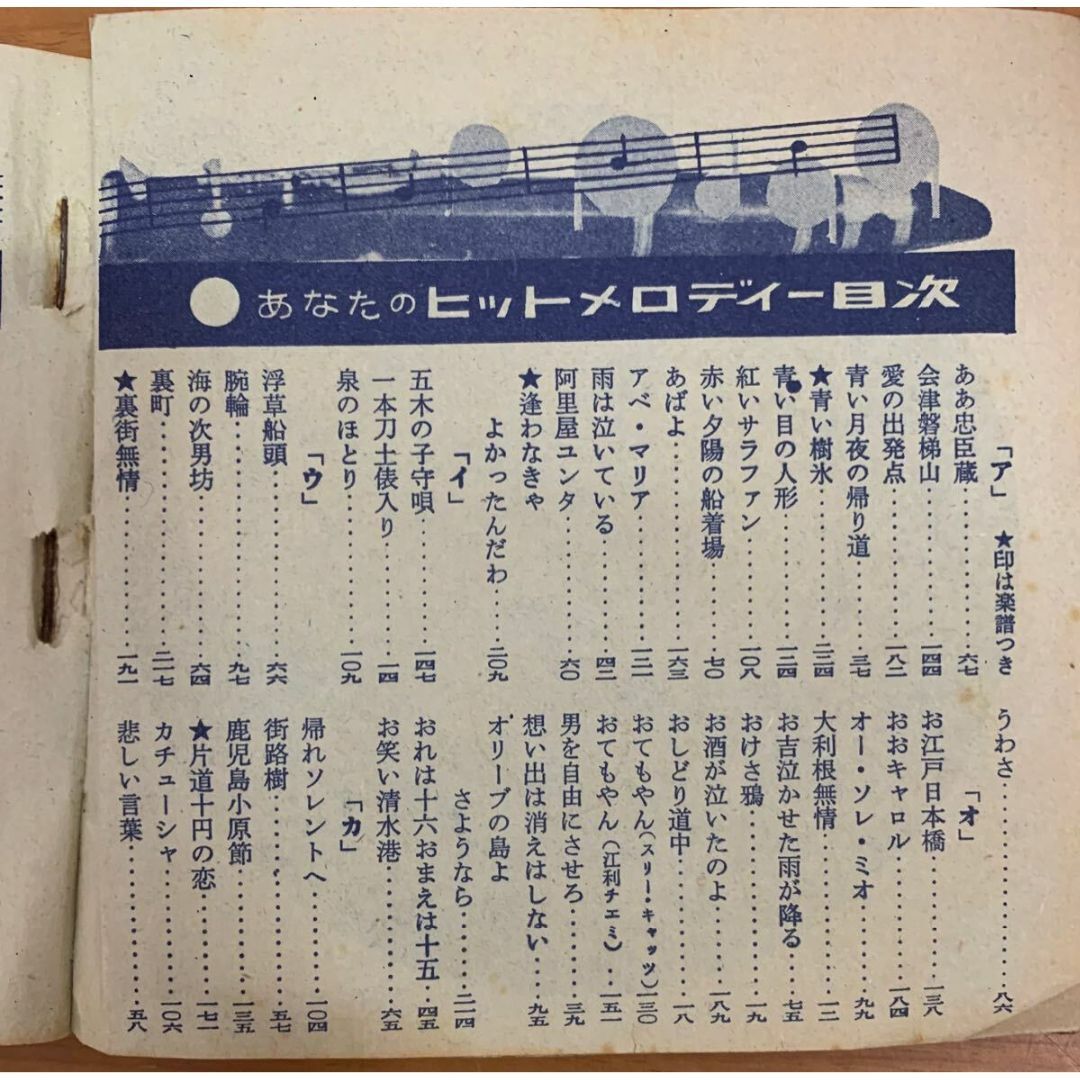 ●あなたのヒットメロディー目次
「ア」 ★印は楽譜つき
ああ忠臣蔵…………六七
会津磐梯山…………一四四
愛の出発点…………一八二
青い月夜の帰り道……三七
★青い樹氷…………二二四
青い目の人形…………一二四
紅いサラファン…………一〇八
赤い夕陽の船着場……七〇
あばよ…………一六三
アベ・マリア…………一二一
雨は泣いている…………四二
阿里屋ユンタ…………六〇
★逢わなきゃ
よかったんだわ……二〇九
「イ」
五木の子守唄…………一四七
一本刀土俵入り…………一四
泉のほとり…………一〇九
「ウ」
浮草船頭…………六六
腕輪…………九七
海の次男坊…………六四
裏町…………二一七
★裏街無情…………一九一
うわさ…………八六
「オ」
お江戸日本橋…………一三八
おおキャロル…………一八四
オー・ソレ・ミオ…………九九
大利根無情…………一二
お吉泣かせた雨が降る……七五
おけさ鴉…………一九
お酒が泣いたのよ…………八九
おしどり道中…………一八
おてもやん(スリー・キャッツ)一三〇
おてもやん(江利チエミ)…一五一
男を自由にさせろ…………三九
想い出は消えはしない……九五
オリーブの島よ
さようなら……二一四
おれは十六おまえは十五…四五
お笑い清水港…………六五
「カ」
帰れソレントへ…………一〇四
街路樹…………五七
鹿児島小原節…………一三五
★片道十円の恋…………一七一
カチューシャ…………一〇六
悲しい言葉…………五八